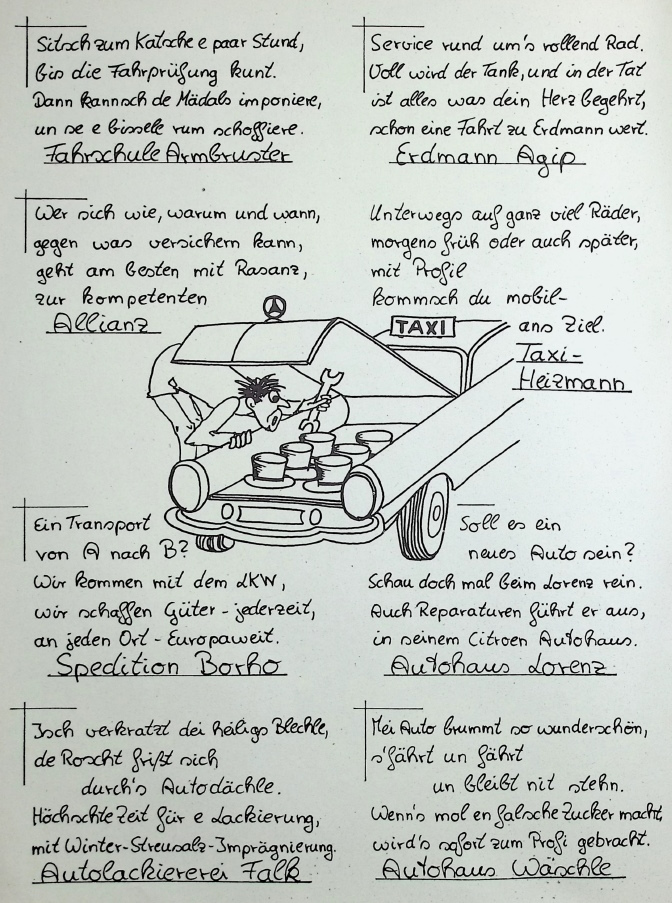 Sitsch zum Katsche e paar Stund,
bis die Fahrprüfung kunt.
Dann kannsch de Mädals imponiere,
un se e bissele rum schoffiere.
Fahrschule Armbruster
Service rund um's rollend Rad.
Voll wird der Tank, und in der Tat
ist alles was dein Herz begehrt,
schon eine Fahrt zu Erdmann wert.
Erdmann Agip
Wer sich wie, warum und wann,
gegen was versichern kann,
geht am besten mit Rasanz,
zur kompetenten
Allianz
Unterwegs auf ganz viel Räder,
morgens früh oder auch später,
mit Profil
kommsch du mobil-
ans Ziel.
Taxi-
Heizmann
TAXI
Ein Transport
von A nach B?
Wir kommen mit dem LKW,
wir schaffen Güter - jederzeit,
an jeden Ort - Europaweit.
Spedition Borho
Soll es ein
neues Auto sein?
Schau doch mal beim Lorenz rein.
Auch Reparaturen führt er aus,
in seinem Citroen Autohaus.
Autohaus Lorenz
Isch verkratzt dei heiligs Blechle,
de Roscht frißt sich
durch's Autodächle.
Höchschte Zeit für e Lackierung,
mit Winter-Streusalz-Imprägnierung.
Autolackiererei Falk
Mei Auto brummt so wunderschön,
s'fährt un fährt
un bleibt nit stehn.
Wenn's mol en falsche Zucker macht,
wird's sofort zum Profi gebracht.
Autohaus Wäschle